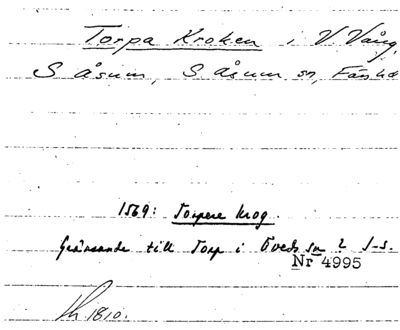 Torpa Kroken i V Vång,
S åsum, S åsum sn, Färshd
1569: Torpere krog.
Gränsande till Torp i Öveds sn ? J-s.
Nr 4995
Th 1810.